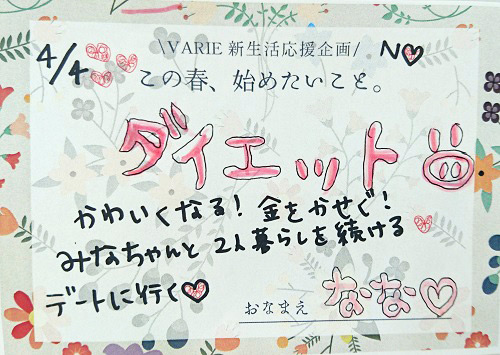 4/4
\VARIE 新生活応援企画/
N♡
この春、始めたいこと。
ダイエット
かわいくなる！金をかせぐ！
みなちゃんと2人暮らしを続ける
デートに行く♡
おなまえ なな♡